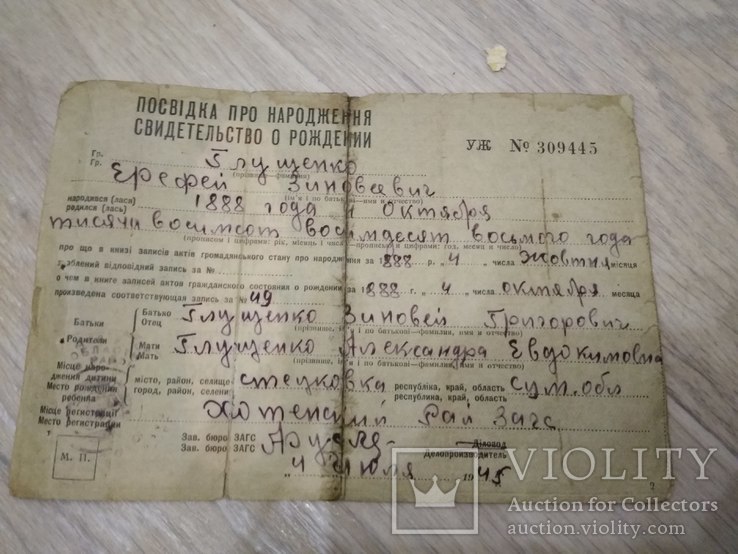 ПОСВІДКА ПРО НАРОДЖЕННЯ
СВИДЕТЕЛЬСТВО О РОЖДЕНИИ
УЖ № 309445
Гр.
Гр. Глущенко
(прізвище—фамилия)
Ерефей Зиновеевич
(ім'я і по батькові—имя и отчество)
народився (лася)
родился (лась) 1888 года 4 Октября
тисяча восимсот восимдесят восьмого года
(прописом і цифрами: рік, місяць і число—прописью и цифрами: год, месяц и число)
про що в книзі записів актів громадянського стану про народження за 1888 р. „4„ числа Жовтня місяця
зроблений відповідний запис за №
о чем в книге записей актов гражданского состояния о рождении за 1888 г. „4„ числа октября месяца
произведена соответствующая запись за № 49
Батьки
Родители
Батько
Отец Глущенко Зиновей Григорович
(прізвище, ім'я і по батькові—фамилия, имя и отчество)
Мати
Мать Глущенко Александра Евдокимовна
(прізвище, ім'я і по батькові—фамилия, имя и отчество)
Місце народження дитини
Место рождения ребенка
місто, район, селище
город, район, селение стецковка республіка, край, область
республика, край, область Сум. обл
Місце регістрації
Место регистрации Хотенский Рай Загс
Зав. бюро ЗАГС
Зав. бюро ЗАГС
Діловод
Делопроизводитель
М. П.
4 Июля 1945
VIOLITY
Auction for Collectors
auction.violity.com